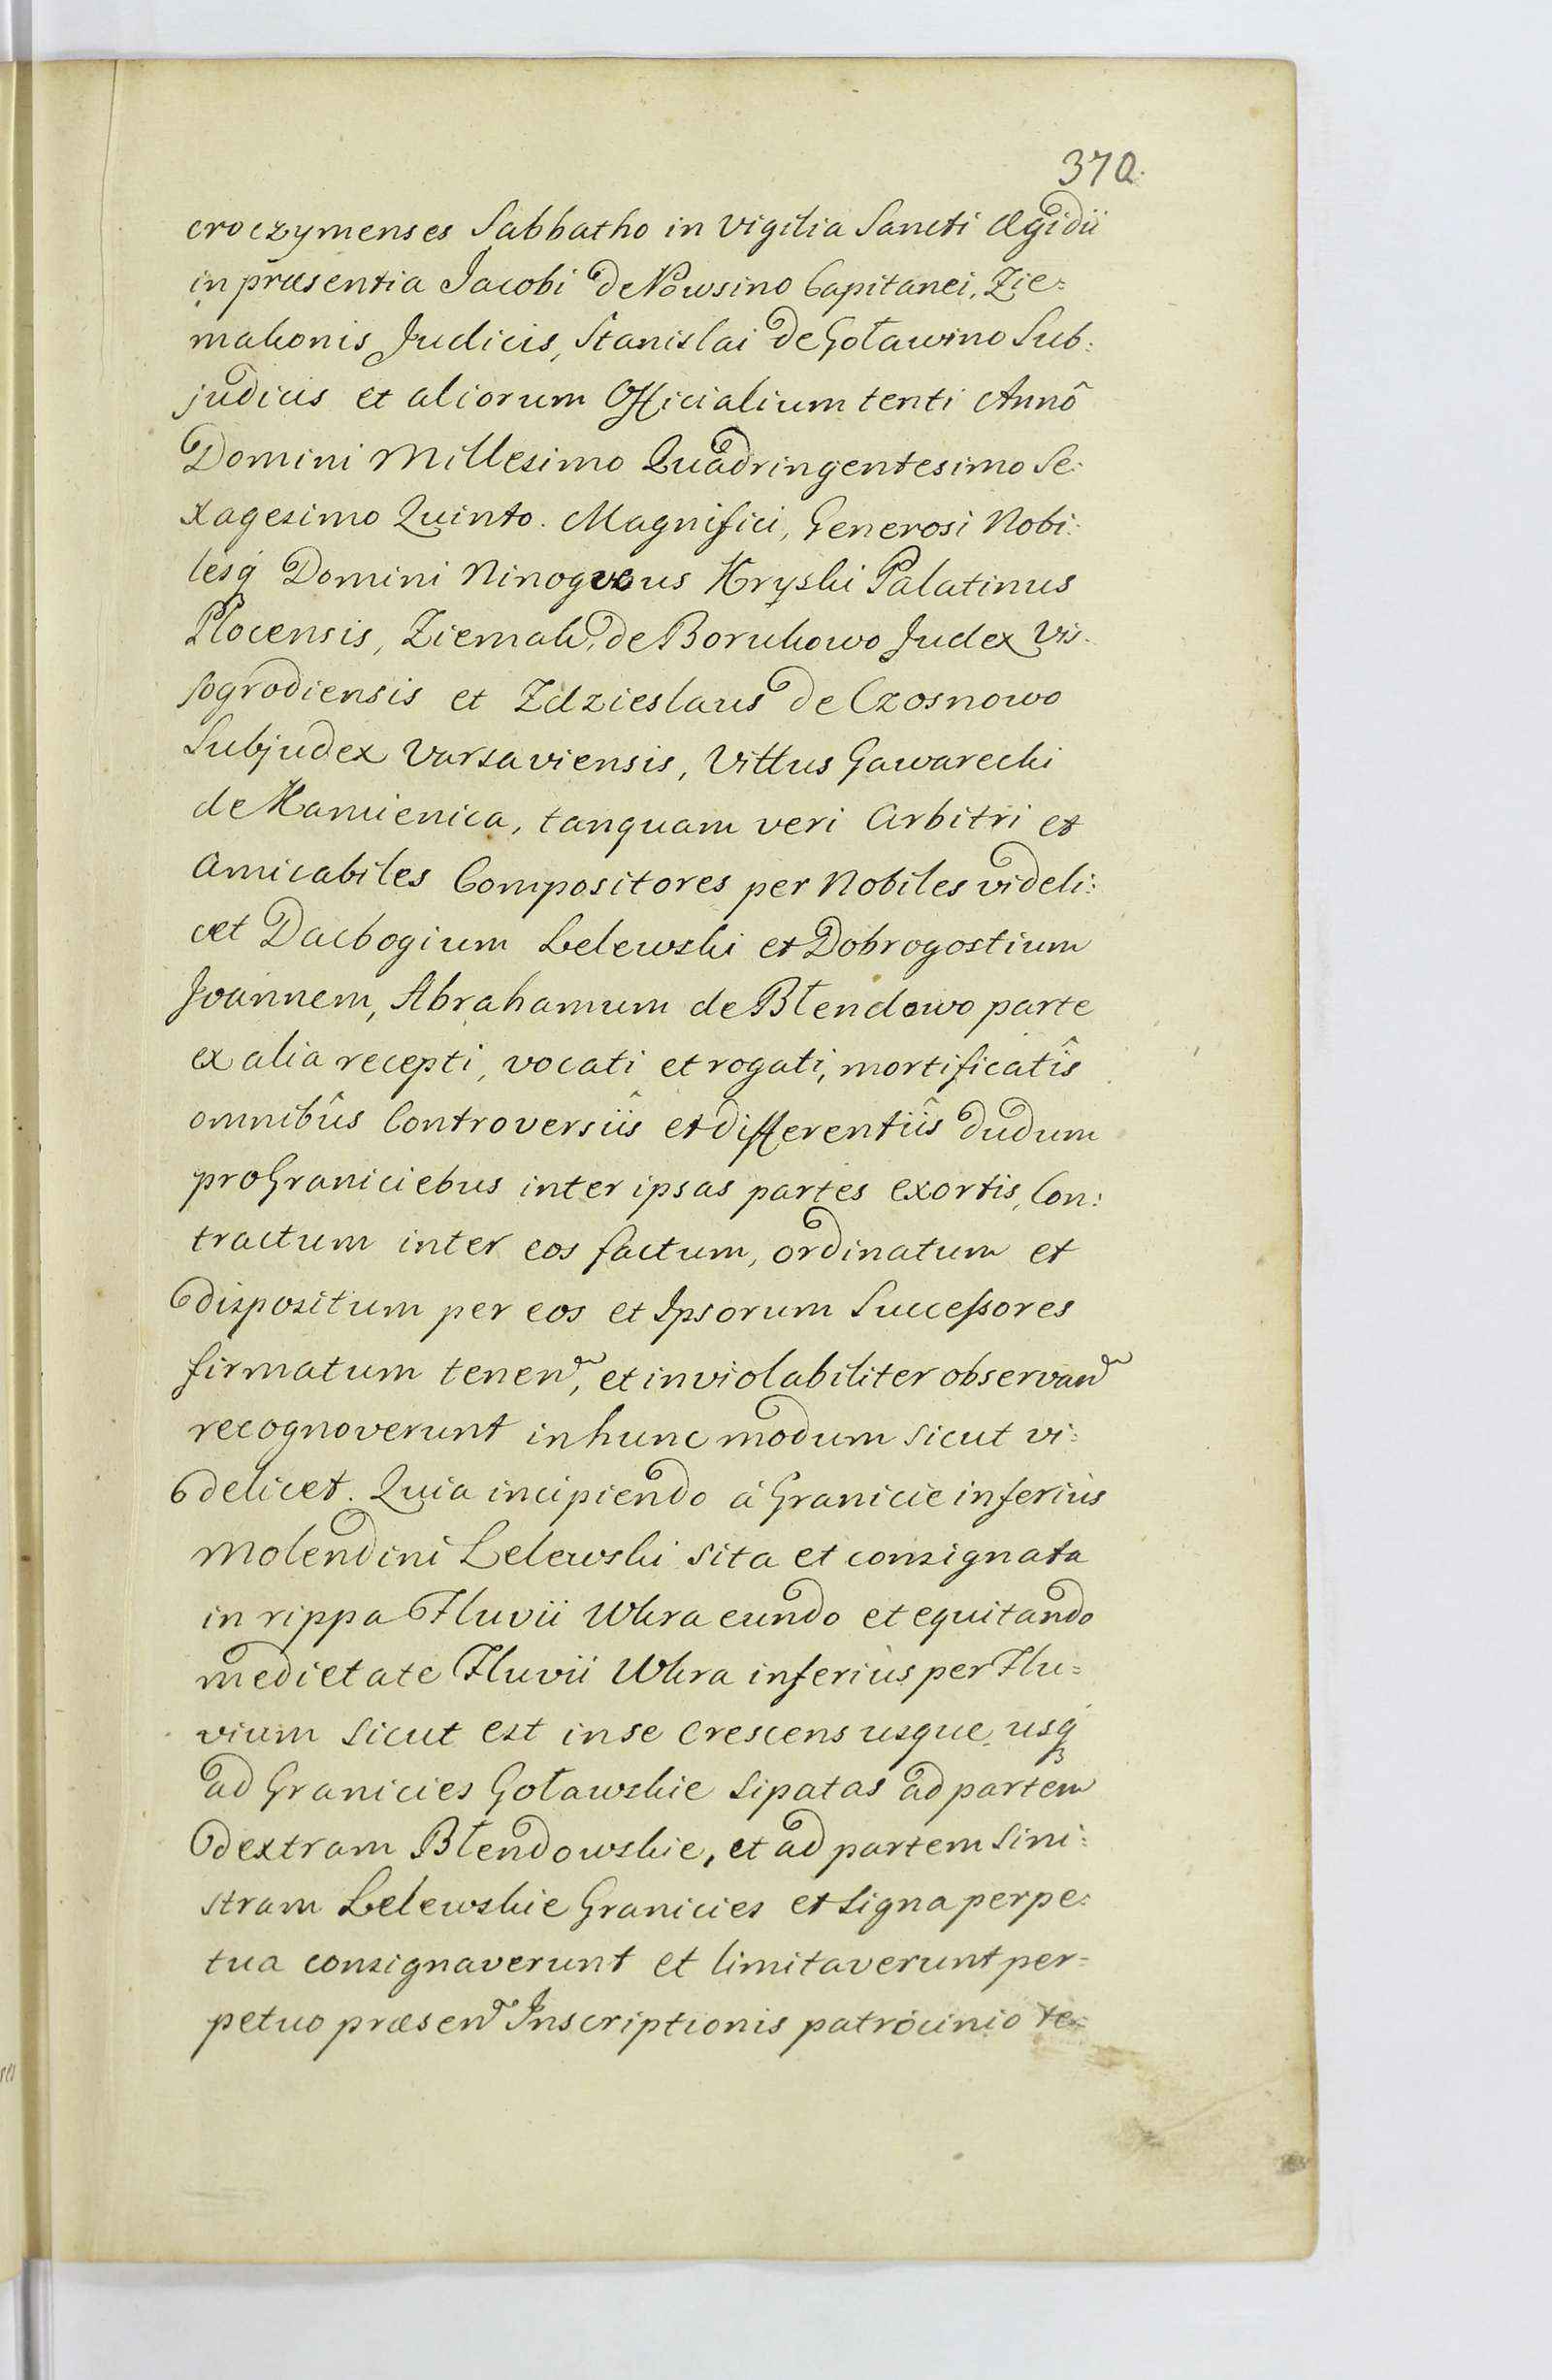 370.
croczymenses Sabbatho in Vigilia Sancti Ægidii
in præsentia Jacobi de Nowsino Capitanei, Zie=
makonis Judicis, Stanislai de Goławino Sub:
judicis et aliorum Officialium tenti Annô
Domini Millesimo Quadringentesimo Se:
xagesimo Quinto. Magnifici, Generosi Nobi:
lesq́ Domini Ninogveus Kryski Palatinus
Plocensis, Ziemak, de Borukowo Judex Vis-
sogrodiensis et Zdzieslaus de Czosnowo
Subjudex Varsaviensis, Vittus Gawarecki
de Kamienica, tanquam veri Arbitri et
Amicabiles Compositores per Nobiles videli:
cet Dacbogium Lelewski et Dobrogostium
Joannem, Abrahamum de Błendowo parte
ex alia recepti, vocati et rogati, mortificatîs
omnibûs Controversiîs et differentiîs dudum
pro Graniciebus inter ipsas partes exortis, Con:
tractum inter eos factum, ordinatum et
dispositum per eos et Ipsorum Successores
firmatum tenen̄d, et inviolabiliter observan̄d
recognoverunt in hunc modum sicut vi=
delicet. Quia incipiendo à Granicie inferiùs
Molendini Lelewski sita et consignata
in rippa Fluvii Wkra eundo et equitando
medietate Fluvii Wkra inferiùs per Flu=
vium sicut est in se crescens usque usq́
ad Granicies Goławskie sipatas ad partem
dextram Błendowskie, et ad partem sini:
stram Lelewskie Granicies et signa perpe:
tua consignaverunt et limitaverunt per=
petuo præsen̄ Inscriptionis patrocinio te=